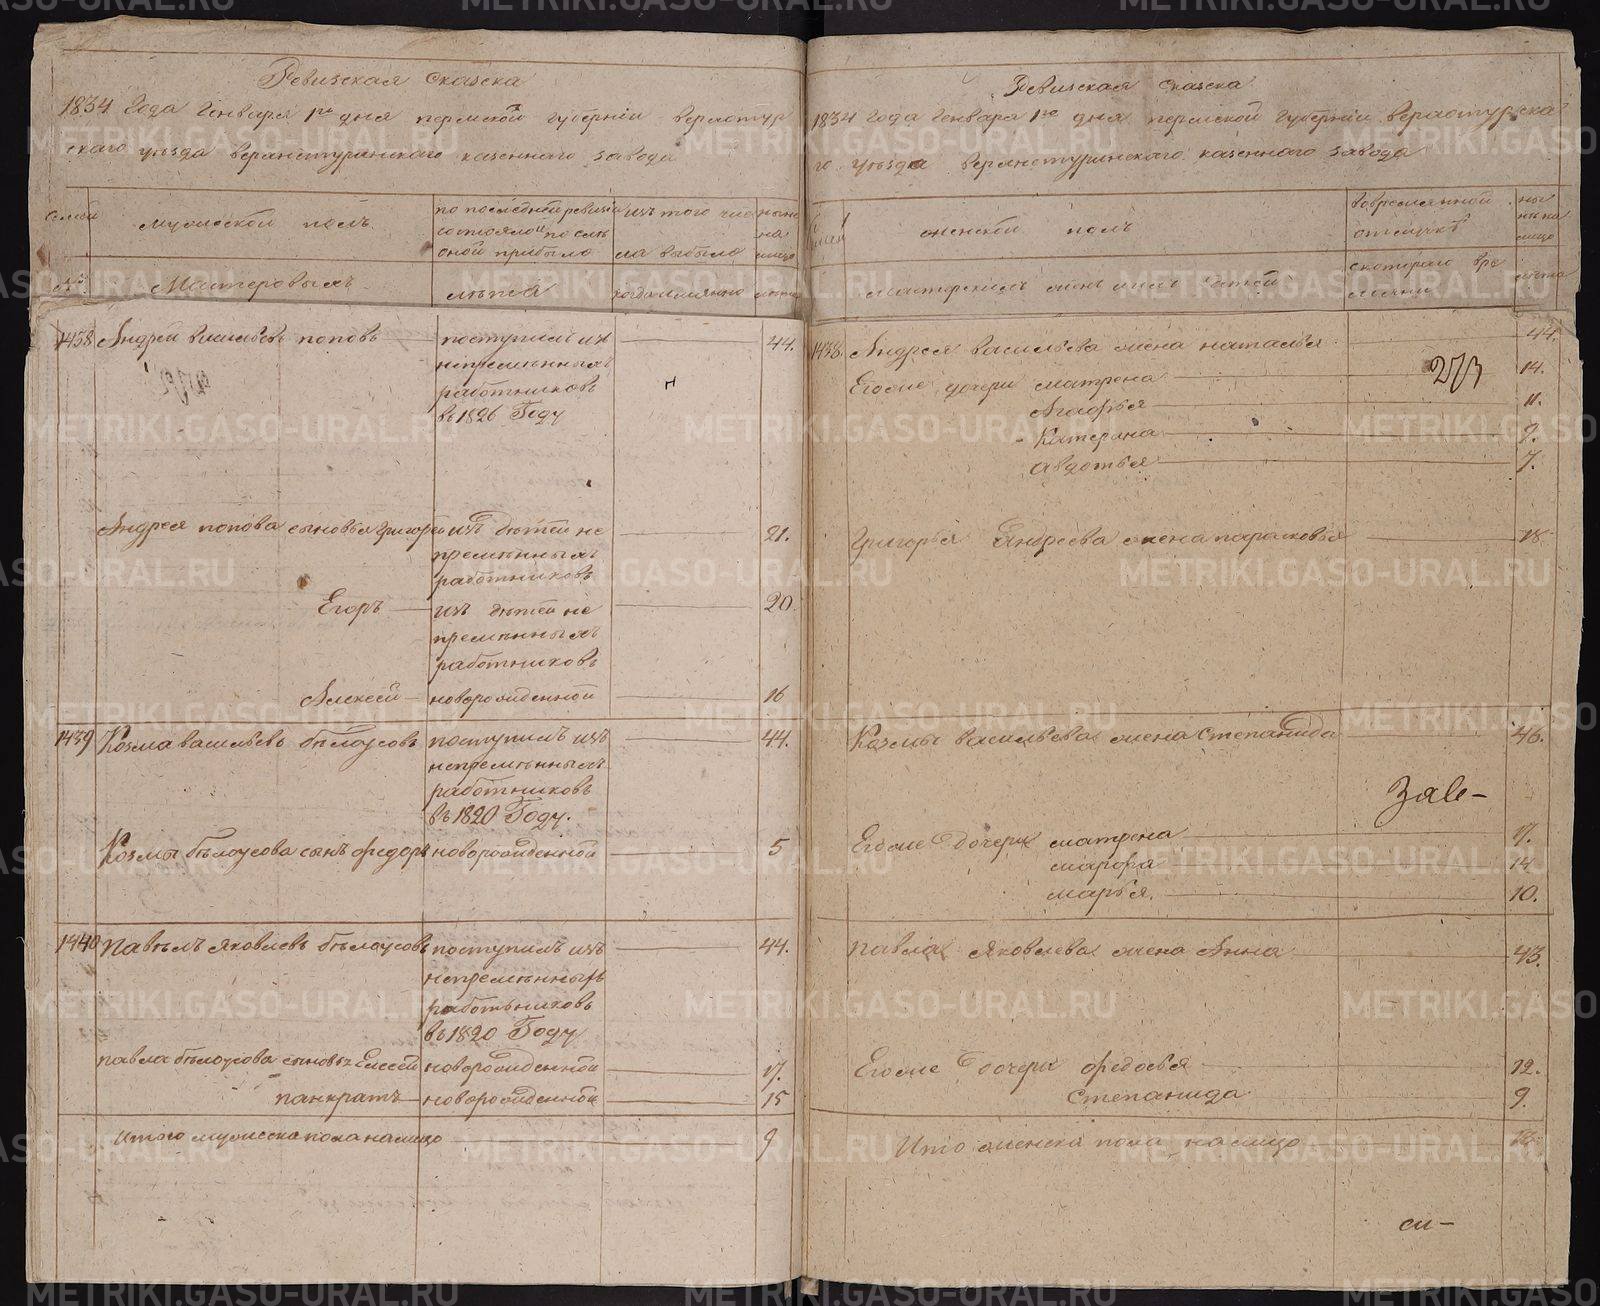 Ревизская сказка
1834 Года Генваря 1го дня пермской губернiи верхотур
скаго уѣзда верхнетуринскаго казеннаго завода
семьи
мужеской полъ
по последней ревизiи
состояло и после
оной прибыло
изъ того числа
выбыло
ныне
на
лицо
Мастеровыхъ
лѣта
когда имянно
лѣта
1438 Андрей васильевъ поповъ поступилъ изъ 44.
непремѣнныхъ
работниковъ
въ 1826 Году
Андрея попова сыновья григорей изъ дѣтей не 21.
премѣнныхъ
работниковъ
Егоръ изъ дѣтей не 20
премѣнныхъ
работниковъ
Алексей новорожденной 16
1439 Козма васильевъ бѣлоусовъ поступилъ изъ 44.
непремѣнныхъ
работниковъ
въ 1820 Году.
Козмы бѣлоусова сынъ федоръ новорожденной 5
1440 павѣлъ яковлевъ бѣлоусовъ поступилъ изъ 44.
непремѣнныхъ
работниковъ
въ 1820 Году
павла бѣлоусова сыновья Елесей новорожденной 17.
панкратъ новорожденной 15
Итого мужеска пола налицо 9
Ревизская сказка
1834 Года Генваря 1го дня пермской губернiи верхотурска
го уѣзда верхнетуринскаго казеннаго завода
женской полъ
во временной
отлучкѣ
ны
нѣ на
лицо
мастерскихъ жонъ и ихъ детей
с котораго вре
мени
лѣта
1438. Андрея васильева жена наталья 44.
273
Егоже дочери матрена 14.
Агафья 11.
Катерина 9.
Авдотья 7.
Григорья Андреева жена парасковья 18
Козмы васильева жена степанида 46.
Заве-
Егоже дочери матрена 17.
марфа 14
марья. 10.
павла яковлева жена Анна 43.
Егоже дочери федосья 12.
степанида 9.
Ито женска пола налицо
си-
METRIKI.GASO-URAL.RU